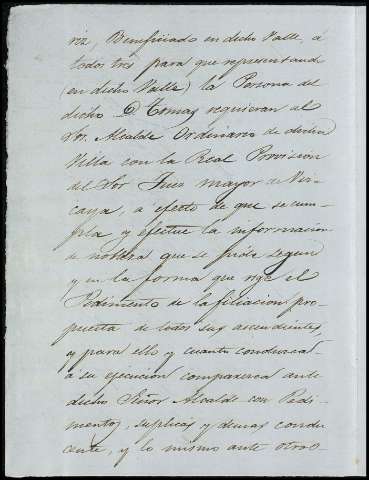 riz, Beneficiado en dicho Valle, á
todos tres para que representando
(en dicho Valle) la Persona del
dicho D. Tomas requieran al
Sor. Alcalde Ordinario de dicha
Villa con la Real Provision
del Sor Juez mayor de Viz-
caya, a efecto de que se cum-
pla y efectue la informacion
de nobleza que se pide segun
y en la forma que rige el
Pedimento de la filiacion pro-
puesta de todos sus ascendientes
y para ello y cuanto conducer
á su ejecucion comparezca ante
dicho Señor Alcalde con Pedi-
mentos, suplicas y demas condu-
cente, y lo mismo ante otro-